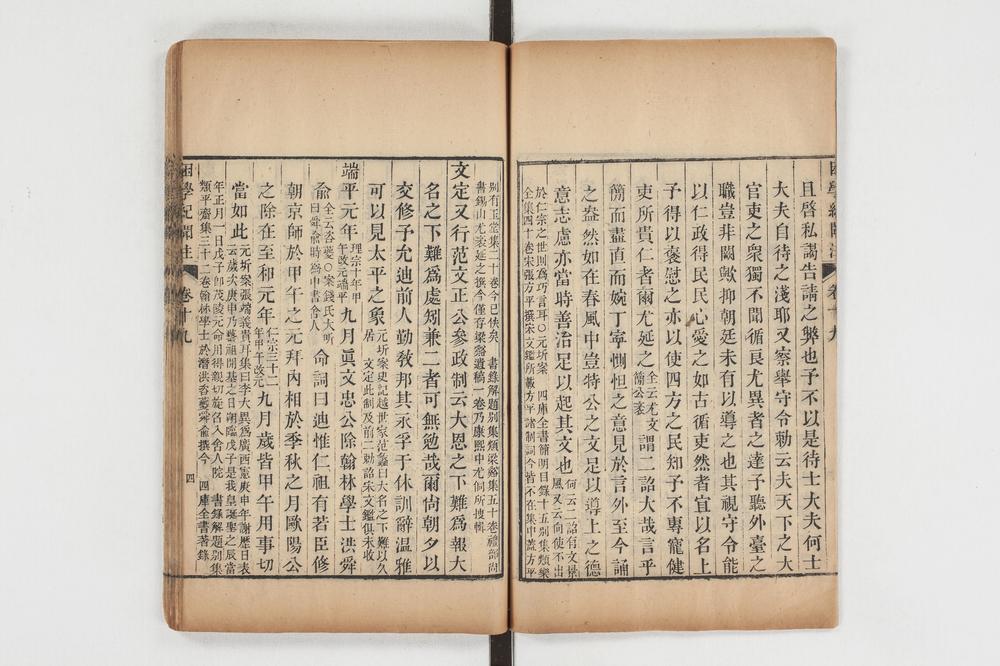 困學紀聞注 卷十九
且啓私謁告請之弊也予不以是待士大夫何士
大夫自待之淺耶又察舉守令勅云夫天下之大
官吏之衆獨不聞循良尤異者之達予聽外臺之
職豈非闕歟抑朝廷未有以導之也其視守令能
以仁政得民民心愛之如古循吏然者宜以名上
予得以褒慰之亦以使四方之民知予不專寵健
吏所貴仁者爾尤延之全云尤文簡公袤謂二詔大哉言乎
簡而盡直而婉丁寧惻怛之意見於言外至今誦
之盎然如在春風中豈特公之文足以導上之德
意志慮亦當時善治足以起其文也何云二詔有文景風又云向使不出
於仁宗之世則爲巧言耳○元圻案 四庫全書簡明目錄十五別集類樂
全集四十卷宋張方平撰宋文鑑所載方平諸制詞今皆不在集中蓋方平
別有玉堂集二十卷今已佚矣 書錄解題別集類梁谿集五十卷禮部尚
書錫山尤袤延之撰今僅存梁谿遺稿一卷乃康熙中尤侗所搜輯
文定又行范文正公參政制云大恩之下難爲報大
名之下難爲處矧兼二者可無勉哉爾尙朝夕以
交修予允迪前人勤敎邦其永孚于休訓辭温雅
可以見太平之象元圻案史記越世家范蠡曰大名之下難以久居 文定此制及前二勅詔宋文鑑俱未收
端平元年理宗十年甲午改元端平九月眞文忠公除翰林學士洪舜
兪全云咨夔○案錢氏大昕曰舜兪時爲中書舍人命詞曰迪惟仁祖有若臣修
朝京師於甲午之元拜內相於季秋之月歐陽公
之除在至和元年仁宗三十二年甲午改元九月歲皆甲午用事切
當如此元圻案張端義貴耳集曰李大異爲廣西憲庚申年謝歷日表云歲次庚申乃藝祖開基之日朔臨戊子是我皇誕聖之辰當
年正月一日戊子卽茂陵元命用得親切旋名入舍人院 書錄解題別集
類平齋集三十二卷翰林學士於潛洪咨夔舜兪撰今 四庫全書著錄
困學紀聞注 卷十九 四